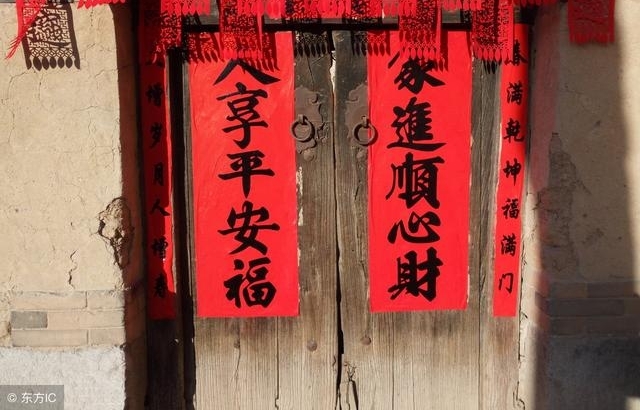 春满乾坤福满门
家進順心財
人享平安福
增岁月人增寿
© 东方IC